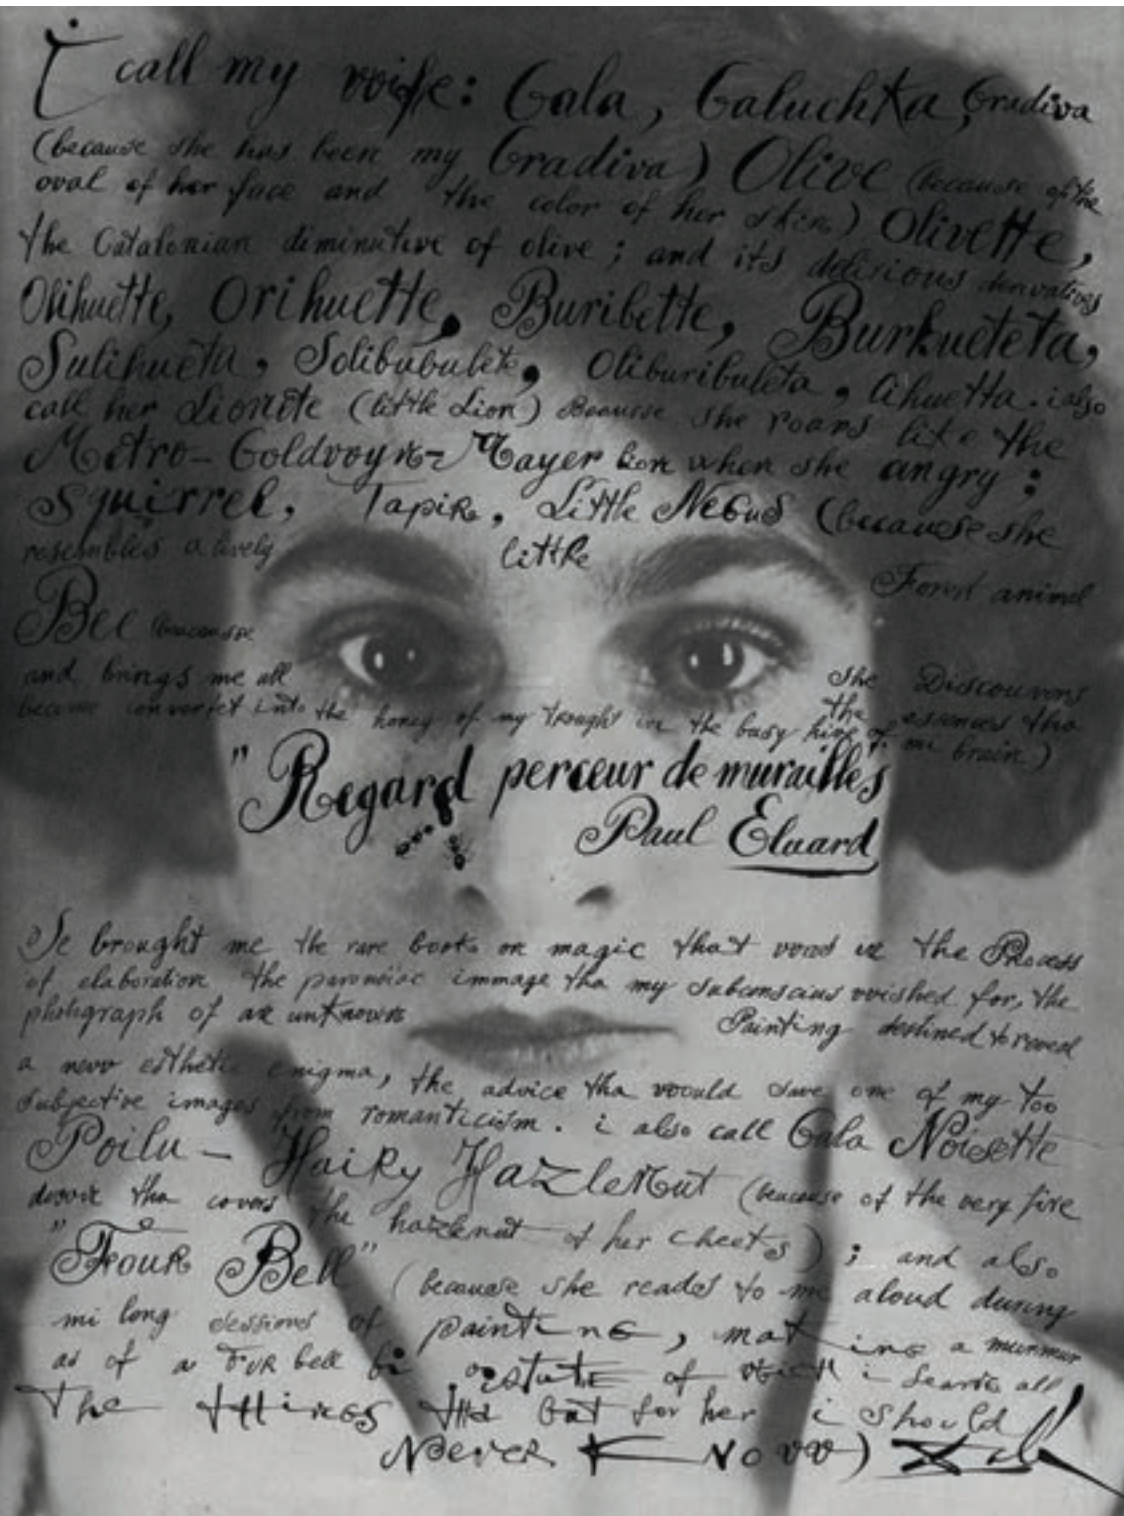 I call my voife: Gala, Galuchka, Gradiva
(because she has been my Gradiva) Olive (because of the
oval of her face and the color of her skin) Olivette,
the Catalonian diminutive of olive; and its delirious derivatives
Olihuette, Orihuette, Buribette, Burkueteta,
Sulihueta, Solibubulete, Oliburibuleta, Cihuetta. i also
call her Lionete (little Lion) Because she roars like the
Metro-Goldvoyn-Mayer Lion when she angry:
Squirrel, Tapir, Little Negus (because she
resembles a lively little Forest animal
Bee (because she Discouvers
and brings me all the essences tha
became convertet into the honey of my trought in the busy hive of mi brain.)
"Regard perceur de murailles
Paul Eluard
brought me the rare books on magic that the Process
of elaboration the paronoiac immage tha my subconscius voished for, the
photgraph of an unknown Painting destined to reveal
a nevv esthetic enigma, the advice tha voould save one of my too
subjective images from romanticism. i also call Gala Noisette
Poilu - Hairy Hazlenut (because of the very fine
tha covers the hazlenut of her cheeks); and also
"Four Bell" (because she reads to me aloud during
mi long sessions of painting, making a murmur
as of a Fur bell of i all
The things tha but for her i should
Never Know)